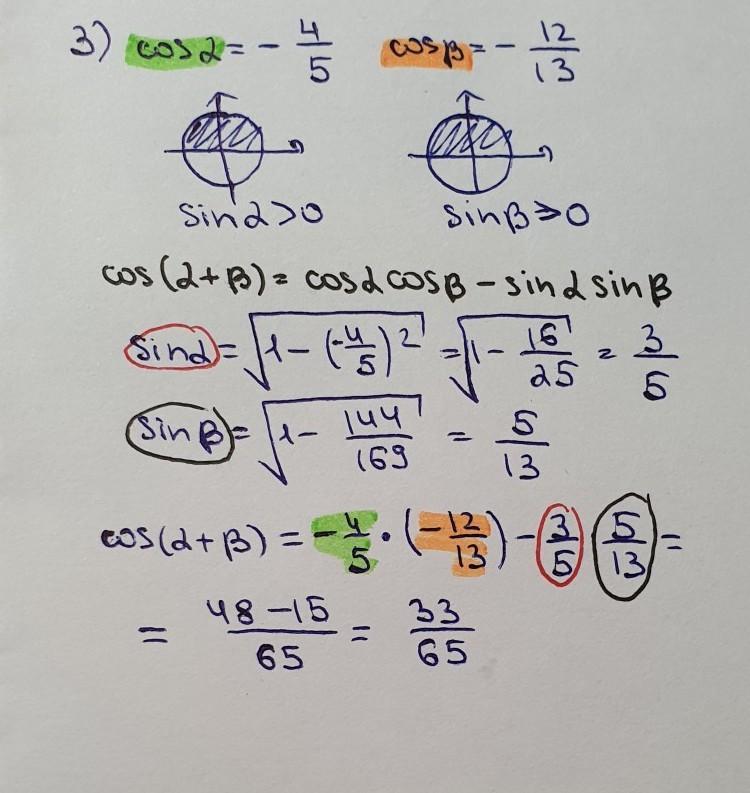 3) cosα = - 4/5 cosβ = - 12/13
sinα>0 sinβ>0
cos(α+β) = cosα cosβ - sinα sinβ
sinα = √(1-(-4/5)²) = √(1- 16/25) = 3/5
sinβ = √(1- 144/169) = 5/13
cos(α+β) = -4/5 · (-12/13) - 3/5 5/13 =
= 48-15/65 = 33/65